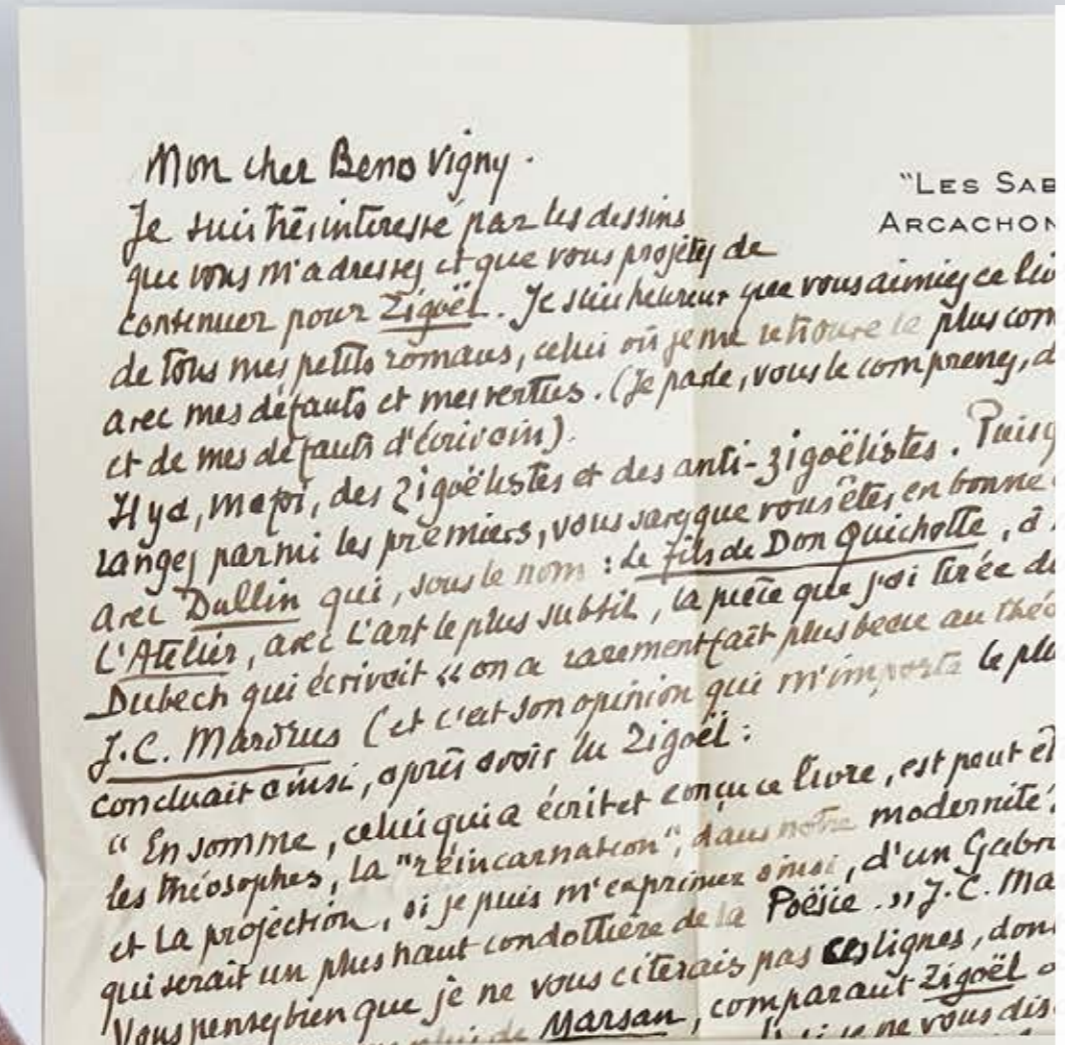 Mon cher Benno Vigny.
"LES SAB
ARCACHON
Je suis très interessé par les dessins
que vous m'adressez et que vous projetez de
continuer pour Zigoël. Je suis heureux que vous aimiez ce liv
de tous mes petits romans, celui où je me retrouve le plus com
avec mes défauts et mes vertus. (Je parle, vous le comprenez, d
et de mes défauts d'écrivain).
Il y a, mon, des zigoëlistes et des anti-zigoëlistes. Puisq
rangez parmi les premiers, vous savez que vous êtes en bonne
avec Dullin qui, sous le nom : le fils de Don Quichotte, a
L'Atelier, avec l'art le plus subtil, la pièce que j'ai tirée de
Dubech qui écrivait «on a rarement fait plus beau au thé
J.C. Mardrus (et c'est son opinion qui m'importe le plu
concluait ainsi, après avoir lu Zigoël :
"En somme, celui qui a écrit et conçu ce livre, est peut êt
les théosophes, la "réincarnation", dans notre modernité,
et la projection, si je puis m'exprimer ainsi, d'un Gabri
qui serait un plus haut condottière de la Poësie.,, J.C. Ma
Vous pensez bien que je ne vous citerais pas ces lignes, don
de Marsan, comparant Zigoël
je ne vous dis